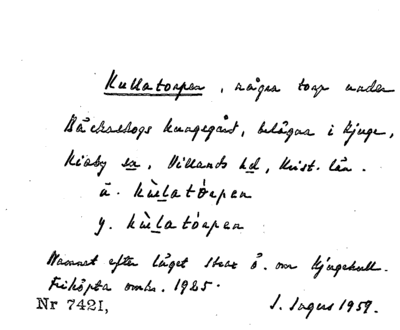 Kullatorpen, några torp under
Bäckaskogs kungsgård, belägna i Kjuge,
Kiaby sn, Villands hd, Krist. län.
ä. kùlatórpen
y. kùlatórpen
Namnet efter läget strax ö. om Kjugekull.
Friköpta omkr. 1925.
Nr 7421, J. Ingers 1959.